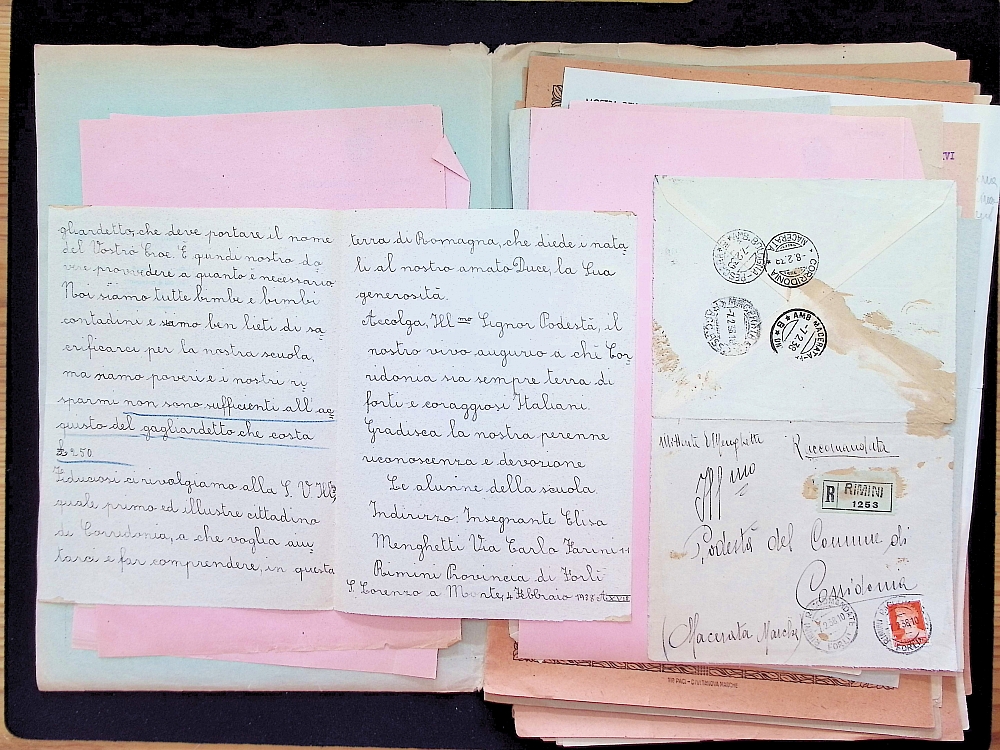 gliardetto, che deve portare il nome
del Vostro Eroe. E quindi nostro do
vere provvedere a quanto è necessario
Noi siamo tutte bimbe e bimbi
contadini e siamo ben lieti di sa
crificarci per la nostra scuola,
ma siamo poveri e i nostri ri
sparmi non sono sufficienti all'ac
quisto del gagliardetto che costa
£ 250.
Fiduciosi ci rivolgiamo alla S. V. Ill
quale primo ed illustre cittadino
di Corridonia, a che voglia aiu
tarci e far comprendere, in questa
terra di Romagna, che diede i nata
li al nostro amato Duce, la Sua
generosità.
Accolga, Ill mo Signor Podestà, il
nostro vivo augurio a chi Cor
ridonia sia sempre terra di
forti e coraggiosi Italiani.
Gradisca la nostra perenne
riconoscenza e devozione
Le alunne della scuola.
Indirizzo: Insegnante Elisa
Menghetti Via Carlo Farini 11
Rimini Provincia di Forlì
S. Lorenzo a Monte, 4 Febbraio 1938 A. XVII
CORRIDONIA
MACERATA
-8.2.39
AMB MACERATA
-7.2.39
Mittente E Menghetti
Raccomandata
Ill mo
R RIMINI
1253
Podestà del Comune di
Corridonia
(Macerata Marche)
FORLI
FORLI
CIVITANOVA MARCHE